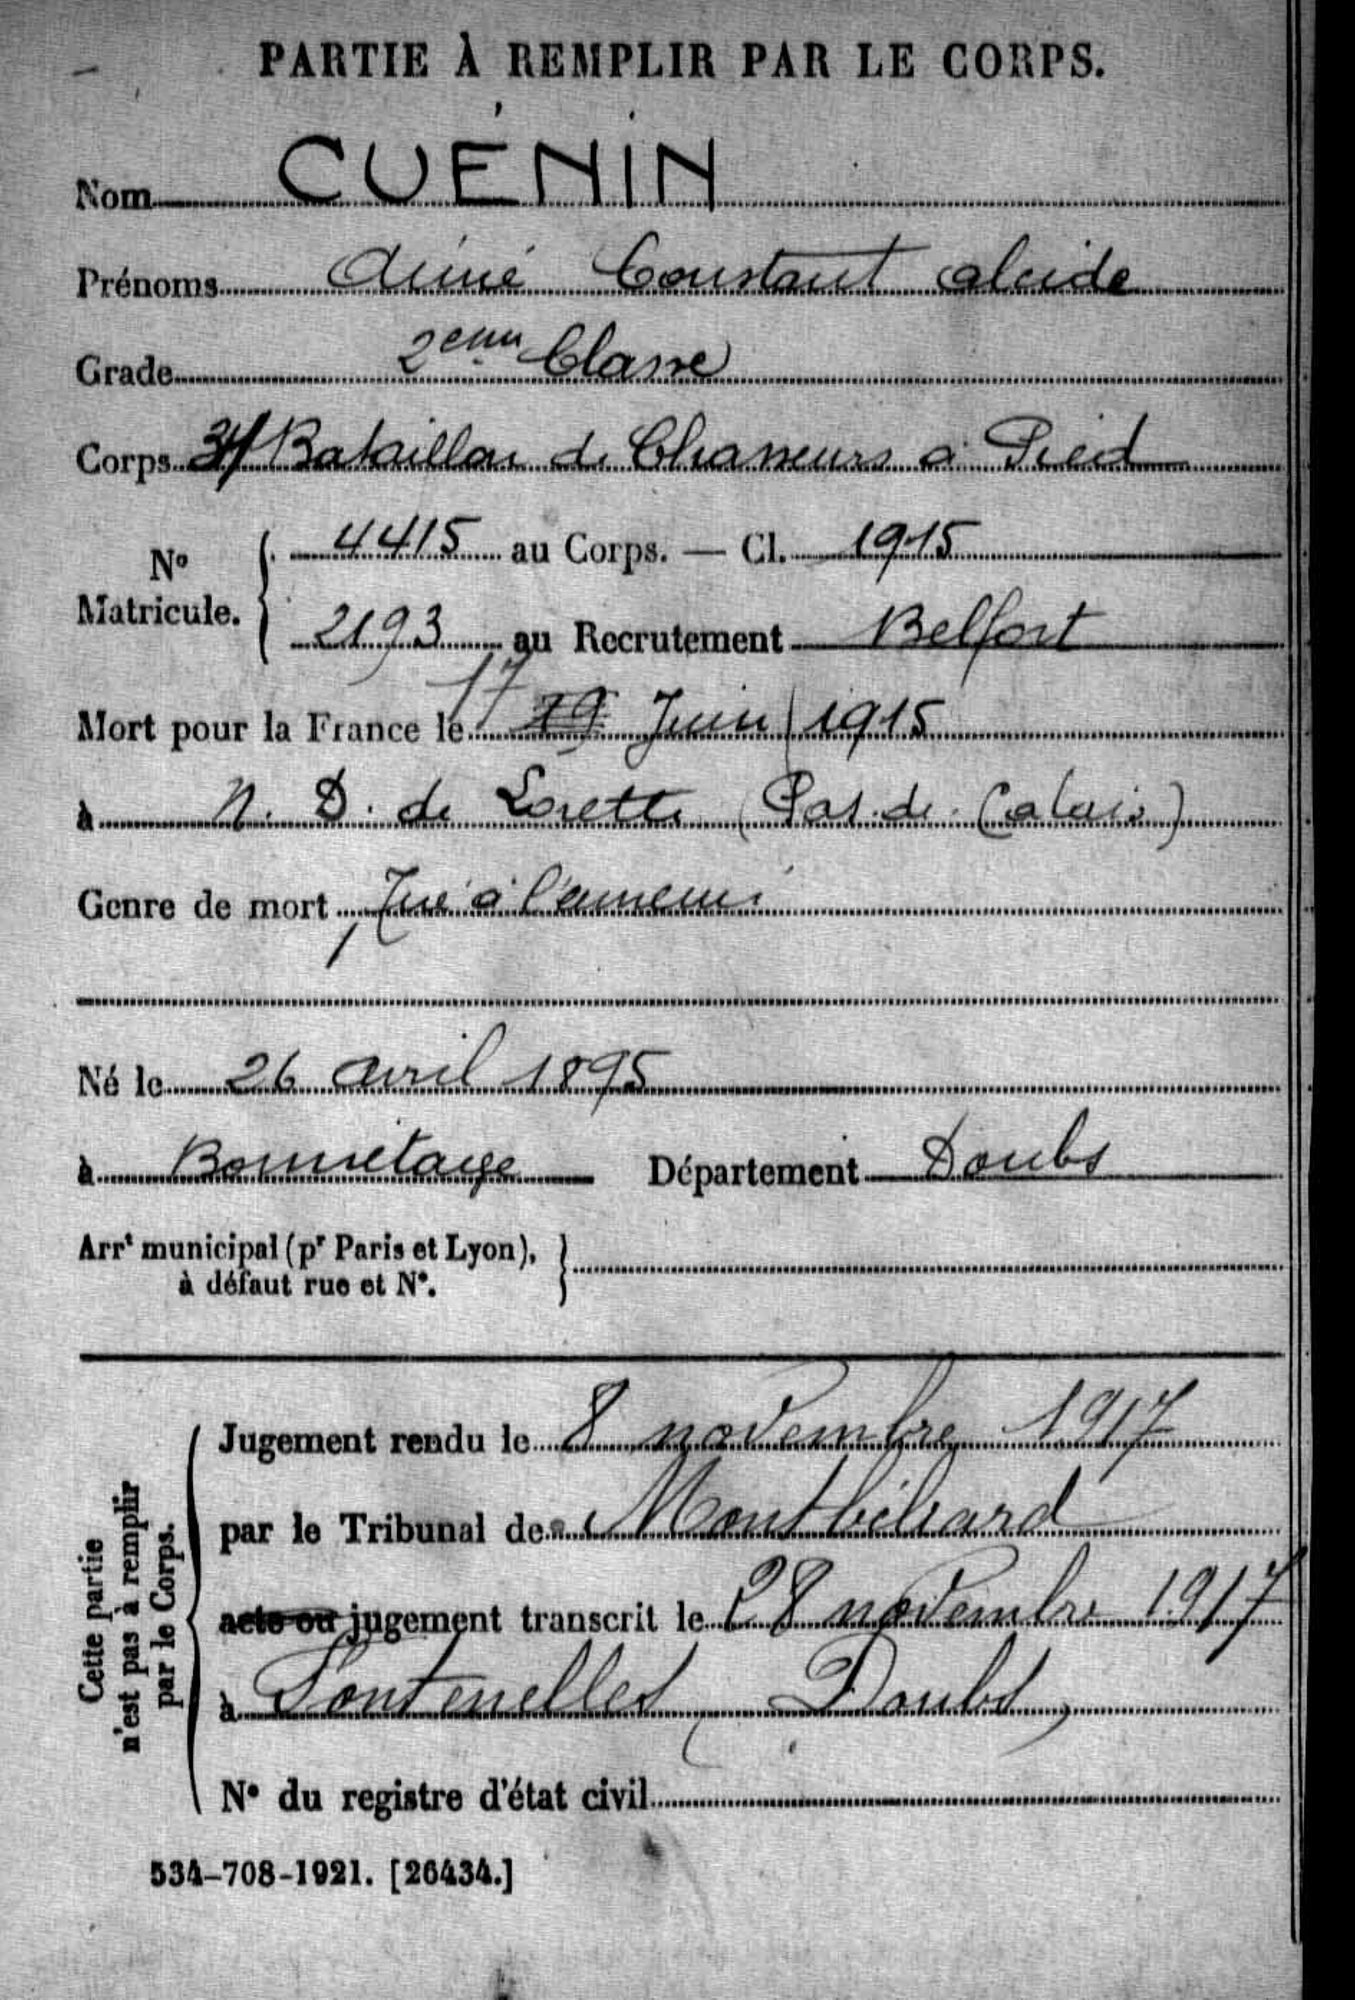 PARTIE À REMPLIR PAR LE CORPS.
Nom CUÉNIN
Prénoms Aimé Constant Alcide
Grade 2eme Classe
Corps Bataillon de Chasseurs à Pied
No Matricule. 4415 au Corps. — Cl. 1915
2193 au Recrutement Belfort
Mort pour la France le 17 19 Juin 1915
à N. D. de Lorette (Pas.de.Calais)
Genre de mort Tué à l'ennemi
Né le 26 avril 1895
à Bonnétage Département Doubs
Arrt municipal (pr Paris et Lyon),
à défaut rue et No.
Cette partie
n'est pas à remplir
par le Corps.
Jugement rendu le 8 novembre 1917
par le Tribunal de Montbéliard
acte ou jugement transcrit le 28 novembre 1917
à Fontenelles (Doubs)
No du registre d'état civil
534-708-1921. [26434.]